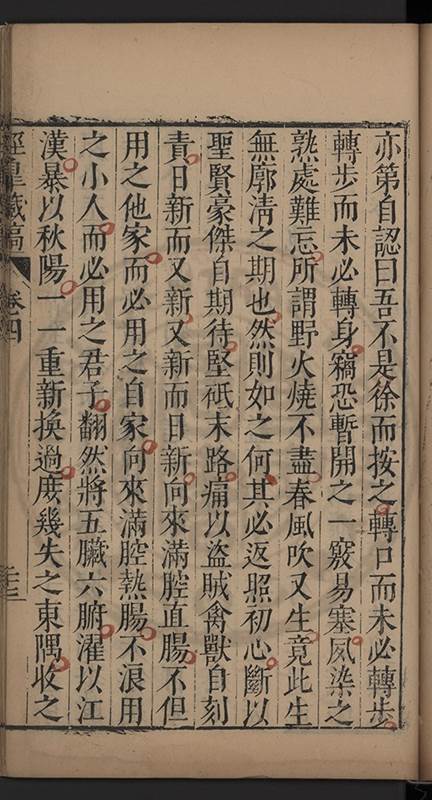 亦第自認曰吾不是徐而按之轉口而未必轉步
轉步而未必轉身竊恐暫開之一竅易塞夙染之
熟處難忘所謂野火燒不盡春風吹又生竟此生
無廓清之期也然則如之何其必返照初心斷以
聖賢豪傑自期待堅砥末路痛以盜賊禽獸自刻
責日新而又新又新而日新向來滿腔直腸不但
用之他家而必用之自家向來滿腔熱腸不浪用
之小人而必用之君子翻然將五臟六腑濯以江
漢暴以秋陽一一重新換過庶幾失之東隅收之
經皇藏稿 卷四 三